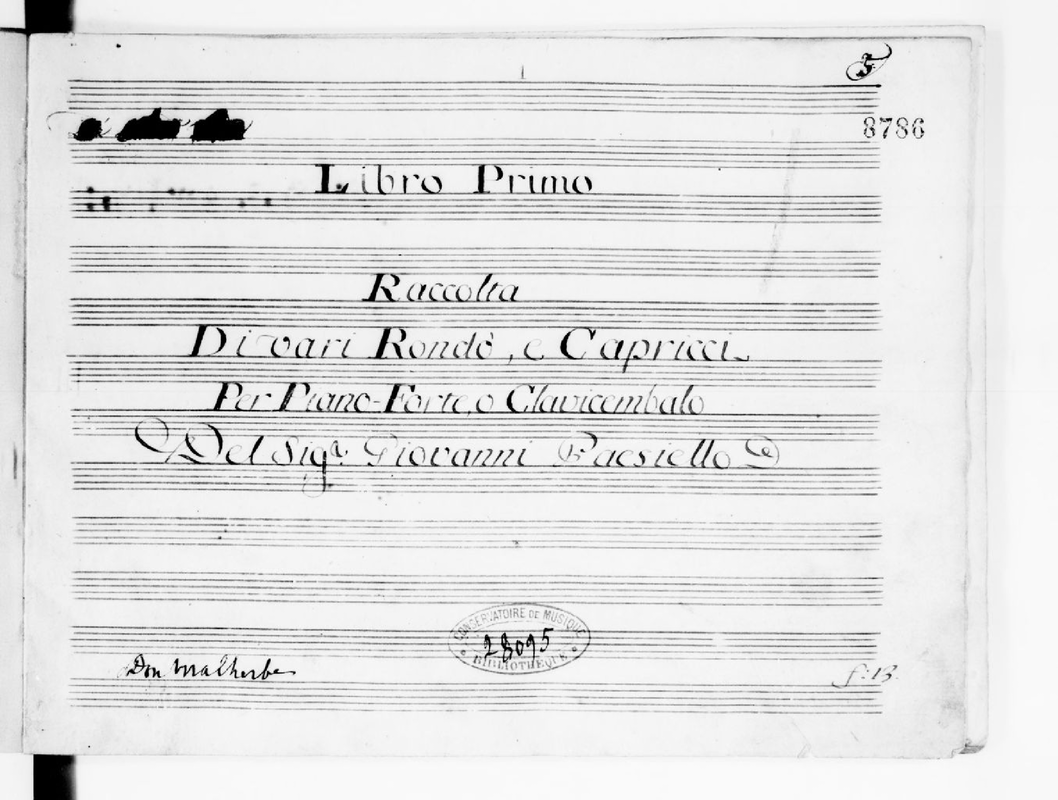 5.
8786
Libro Primo
Raccolta
Di vari Rondò, e Capricci
Per Piano-Forte, o Clavicembalo
Del Sig.r Giovanni Paesiello
CONSERVATOIRE DE MUSIQUE
28095
BIBLIOTHÈQUE
Don Malherbe
f: 13.